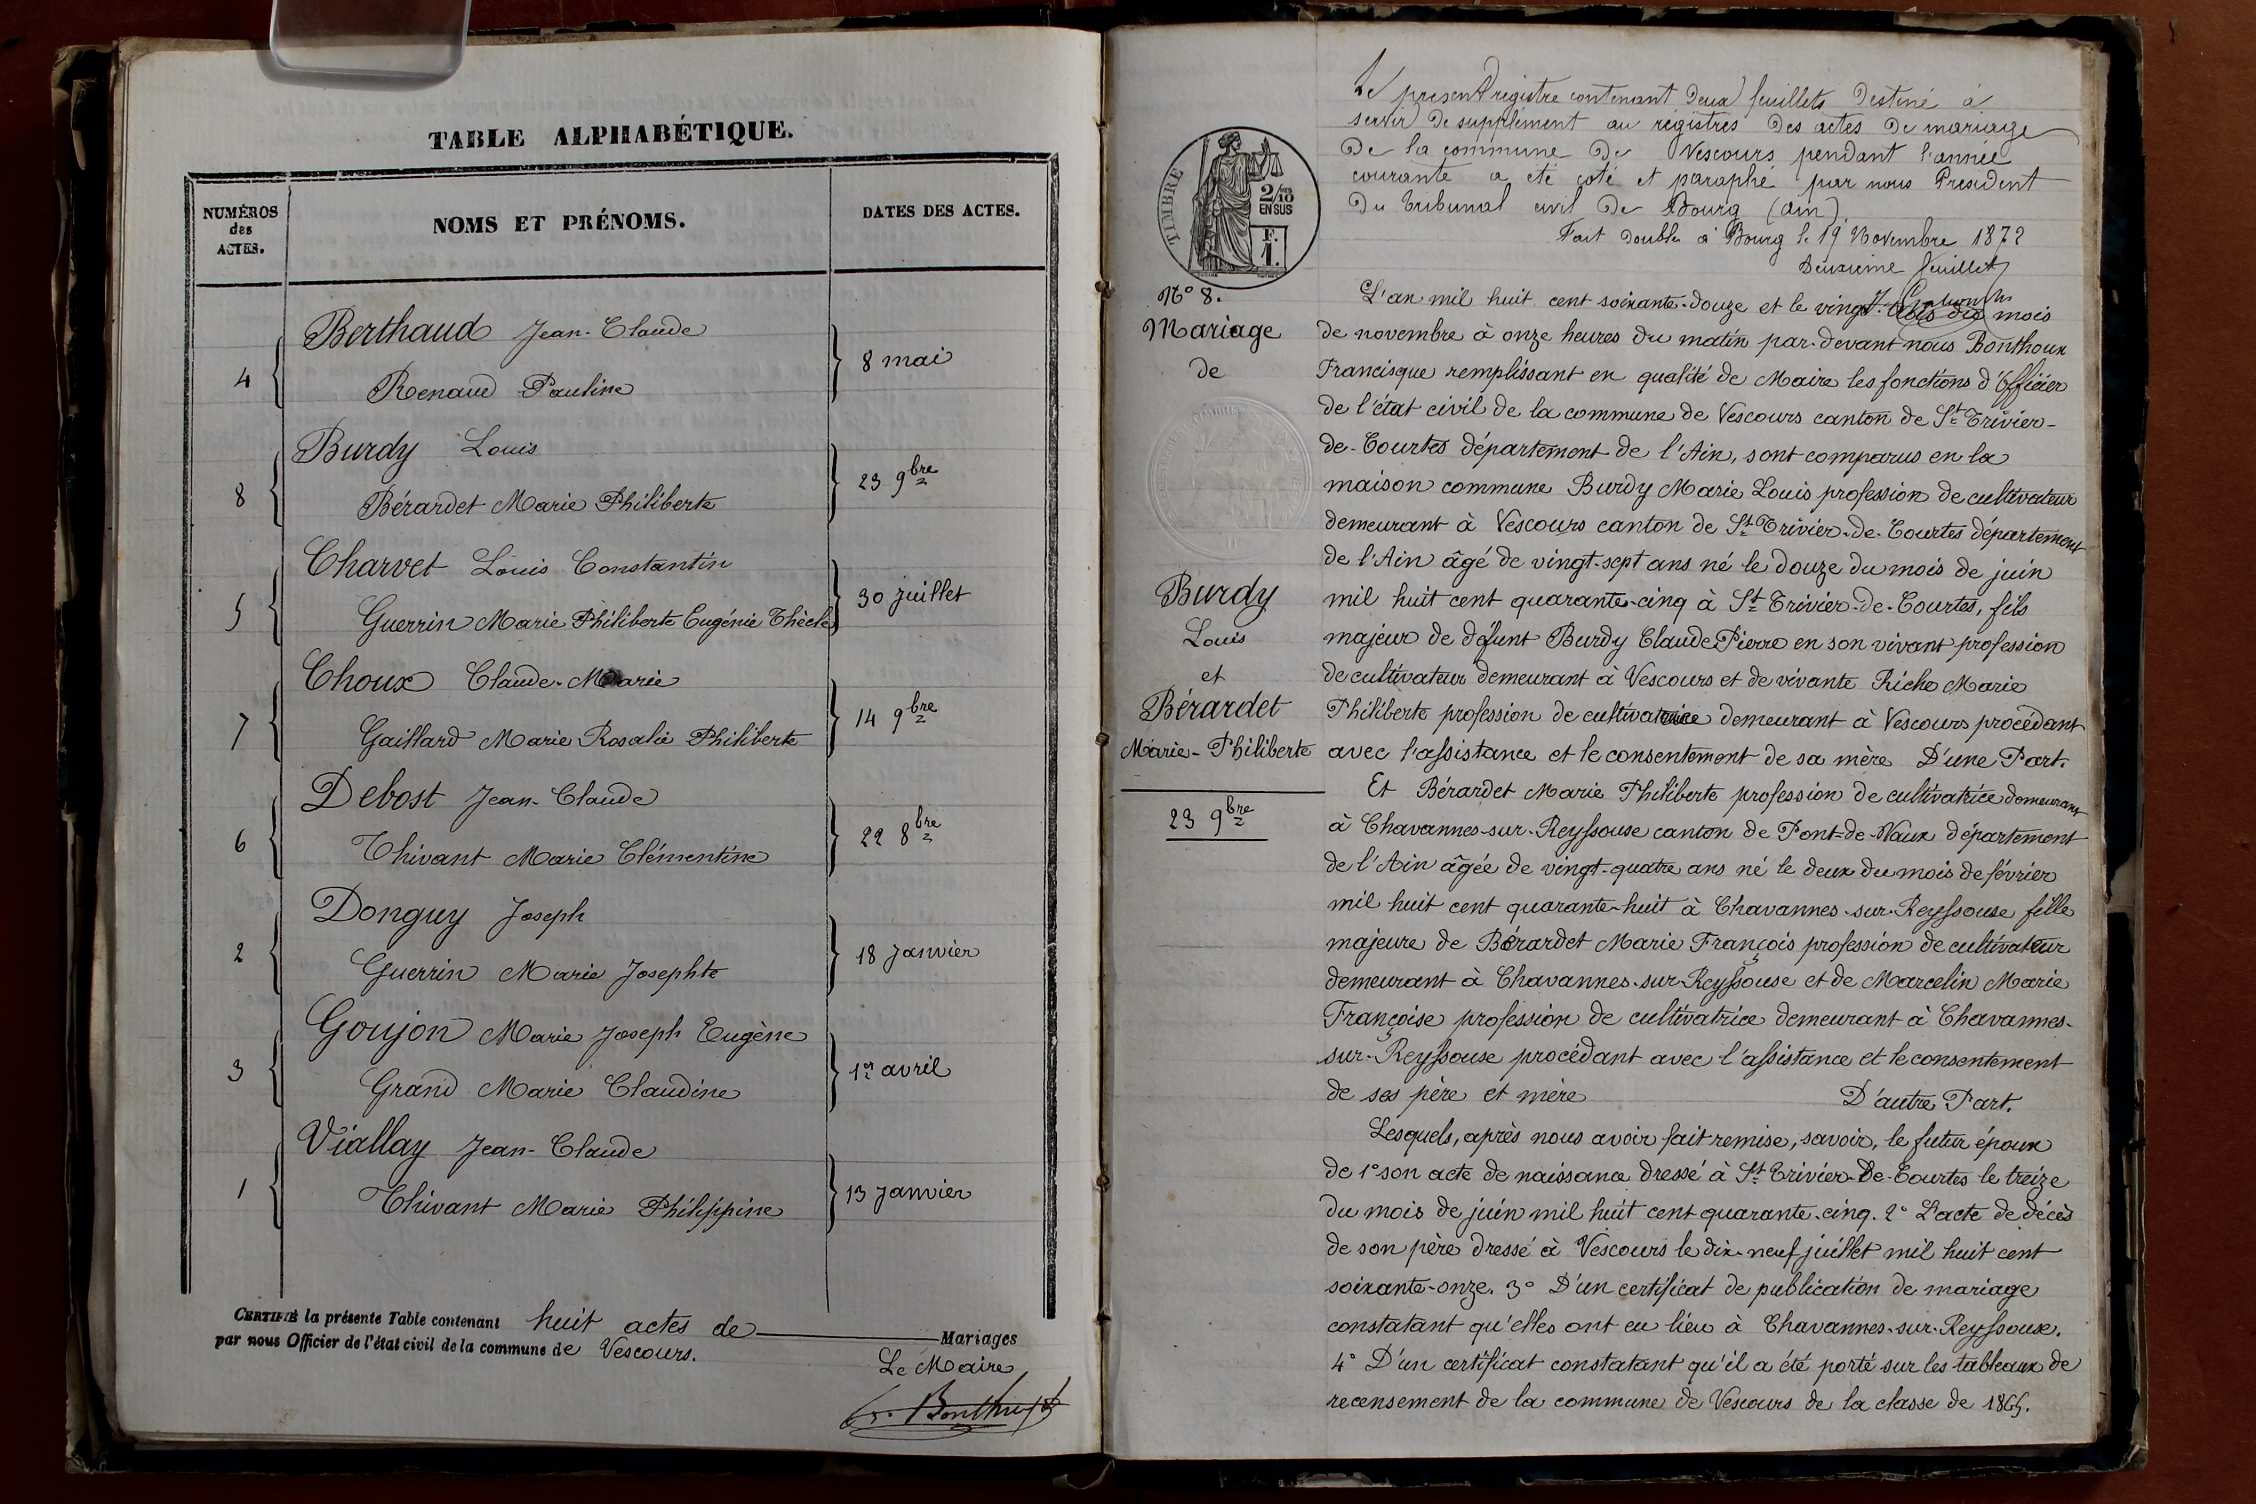 TABLE ALPHABÉTIQUE.
NUMÉROS
des
ACTES.
NOMS ET PRÉNOMS.
DATES DES ACTES.
Berthaud Jean-Claude
4
8 mai
Renaud Pauline
Burdy Louis
8
23 9bre
Bérardet Marie Philiberte
Charvet Louis Constantin
5
30 juillet
Guerrin Marie Philiberte Eugénie Thècle
Choux Claude-Marie
7
14 9bre
Gaillard Marie Rosalie Philiberte
Debost Jean-Claude
6
22 8bre
Thivant Marie Clémentine
Donguy Joseph
2
18 Janvier
Guerrin Marie Josephte
Goujon Marie Joseph Eugène
3
1er avril
Grand Marie Claudine
Viallay Jean-Claude
1
13 Janvier
Thivant Marie Philippine
CERTIFIÉ la présente Table contenant huit actes de Mariages
par nous Officier de l'état civil de la commune de Vescours.
Le Maire
Le présent registre contenant deux feuillets destiné à
servir de supplément au registres des actes de mariage
de la commune de Vescours pendant l'année
courante a été coté et paraphé par nous Président
du Tribunal civil de Bourg (Ain)
Fait double à Bourg le 19 Novembre 1872
deuxième feuillet
TIMBRE
2/10 EN SUS
F.
1.
No 8.
Mariage
de
Burdy
Louis
et
Bérardet
Marie-Philiberte
23 9bre
L'an mil huit cent soixante-douze et le vingt-trois du mois
de novembre à onze heures du matin par-devant nous Bonthoux
Francisque remplissant en qualité de Maire les fonctions d'Officier
de l'état civil de la commune de Vescours canton de St Trivier-
de-Courtes département de l'Ain, sont comparus en la
maison commune Burdy Marie Louis profession de cultivateur
demeurant à Vescours canton de St Trivier-de-Courtes département
de l'Ain âgé de vingt-sept ans né le douze du mois de juin
mil huit cent quarante-cinq à St Trivier-de-Courtes, fils
majeur de défunt Burdy Claude Pierre en son vivant profession
de cultivateur demeurant à Vescours et de vivante Riche Marie
Philiberte profession de cultivatrice demeurant à Vescours procédant
avec l'assistance et le consentement de sa mère D'une Part.
Et Bérardet Marie Philiberte profession de cultivatrice demeurant
à Chavannes-sur-Reyssouse canton de Pont-de-Vaux département
de l'Ain âgée de vingt-quatre ans né le deux du mois de février
mil huit cent quarante-huit à Chavannes-sur-Reyssouse fille
majeure de Bérardet Marie François profession de cultivateur
demeurant à Chavannes-sur-Reyssouse et de Marcelin Marie
Françoise profession de cultivatrice demeurant à Chavannes-
sur-Reyssouse procédant avec l'assistance et le consentement
de ses père et mère D'autre Part.
Lesquels, après nous avoir fait remise, savoir, le futur époux
de 1° son acte de naissance dressé à St Trivier-de-Courtes le treize
du mois de juin mil huit cent quarante-cinq. 2° L'acte de décès
de son père dressé à Vescours le dix-neuf juillet mil huit cent
soixante-onze. 3° D'un certificat de publication de mariage
constatant qu'elles ont eu lieu à Chavannes-sur-Reyssouse.
4° D'un certificat constatant qu'il a été porté sur les tableaux de
recensement de la commune de Vescours de la classe de 1865.